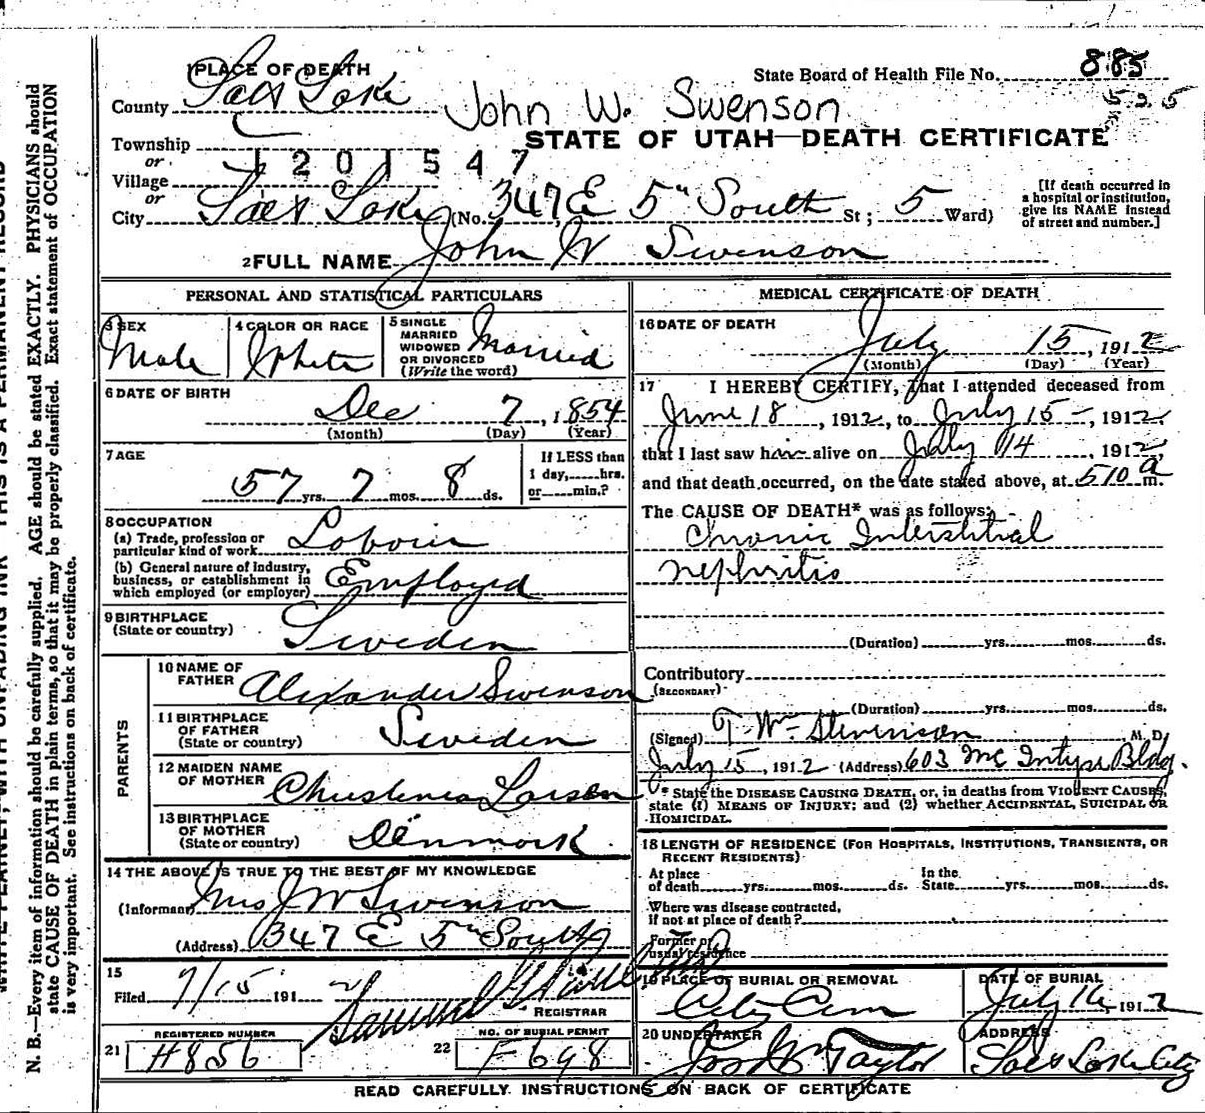 1 PLACE OF DEATH
State Board of Health File No. 885
County Salt Lake
John W. Swenson
525
STATE OF UTAH—DEATH CERTIFICATE
Township
or
1201547
Village
or
City Salt Lake (No. 347 E 5" South St; 5 Ward)
[If death occurred in a hospital or institution, give its NAME instead of street and number.]
2 FULL NAME John W Swenson
PERSONAL AND STATISTICAL PARTICULARS
3 SEX
Male
4 COLOR OR RACE
White
5 SINGLE
MARRIED
WIDOWED
OR DIVORCED
(Write the word)
Married
6 DATE OF BIRTH
Dec 7, 1854
(Month) (Day) (Year)
7 AGE
57 yrs. 7 mos. 8 ds.
If LESS than
1 day,......hrs.
or......min.?
8 OCCUPATION
(a) Trade, profession or
particular kind of work Laborer
(b) General nature of industry,
business, or establishment in
which employed (or employer) Employed
9 BIRTHPLACE
(State or country) Sweden
PARENTS
10 NAME OF
FATHER Alexander Swenson
11 BIRTHPLACE
OF FATHER
(State or country) Sweden
12 MAIDEN NAME
OF MOTHER Christena Larsen
13 BIRTHPLACE
OF MOTHER
(State or country) Denmark
14 THE ABOVE IS TRUE TO THE BEST OF MY KNOWLEDGE
(Informant) Mrs J W Swenson
(Address) 347 E 5" South
15
Filed 7/15 1912 Samuel G
REGISTRAR
REGISTERED NUMBER
21 H856
NO. OF BURIAL PERMIT
22 F698
MEDICAL CERTIFICATE OF DEATH
16 DATE OF DEATH
July 15, 1912
(Month) (Day) (Year)
17 I HEREBY CERTIFY, That I attended deceased from
June 18, 1912, to July 15, 1912,
that I last saw him alive on July 14, 1912,
and that death occurred, on the date stated above, at 510 a m.
The CAUSE OF DEATH* was as follows:
Chronic Interstitial
Nephritis
(Duration) yrs. mos. ds.
Contributory
(SECONDARY)
(Duration) yrs. mos. ds.
(Signed) T. Wm Stevenson, M. D.
July 15, 1912 (Address) 603 McIntyre Bldg.
* State the DISEASE CAUSING DEATH, or, in deaths from VIOLENT CAUSES,
state (1) MEANS OF INJURY; and (2) whether ACCIDENTAL, SUICIDAL OR
HOMICIDAL.
18 LENGTH OF RESIDENCE (FOR HOSPITALS, INSTITUTIONS, TRANSIENTS, OR
RECENT RESIDENTS)
At place
of death yrs. mos. ds.
In the
State yrs. mos. ds.
Where was disease contracted,
if not at place of death?
Former or
usual residence
19 PLACE OF BURIAL OR REMOVAL
City Cem
DATE OF BURIAL
July 16 1912
20 UNDERTAKER
Jos Wm Taylor
ADDRESS
Salt Lake City
READ CAREFULLY INSTRUCTIONS ON BACK OF CERTIFICATE
N. B.—Every item of information should be carefully supplied. AGE should be stated EXACTLY. PHYSICIANS should
state CAUSE OF DEATH in plain terms, so that it may be properly classified. Exact statement of OCCUPATION
is very important. See instructions on back of certificate.